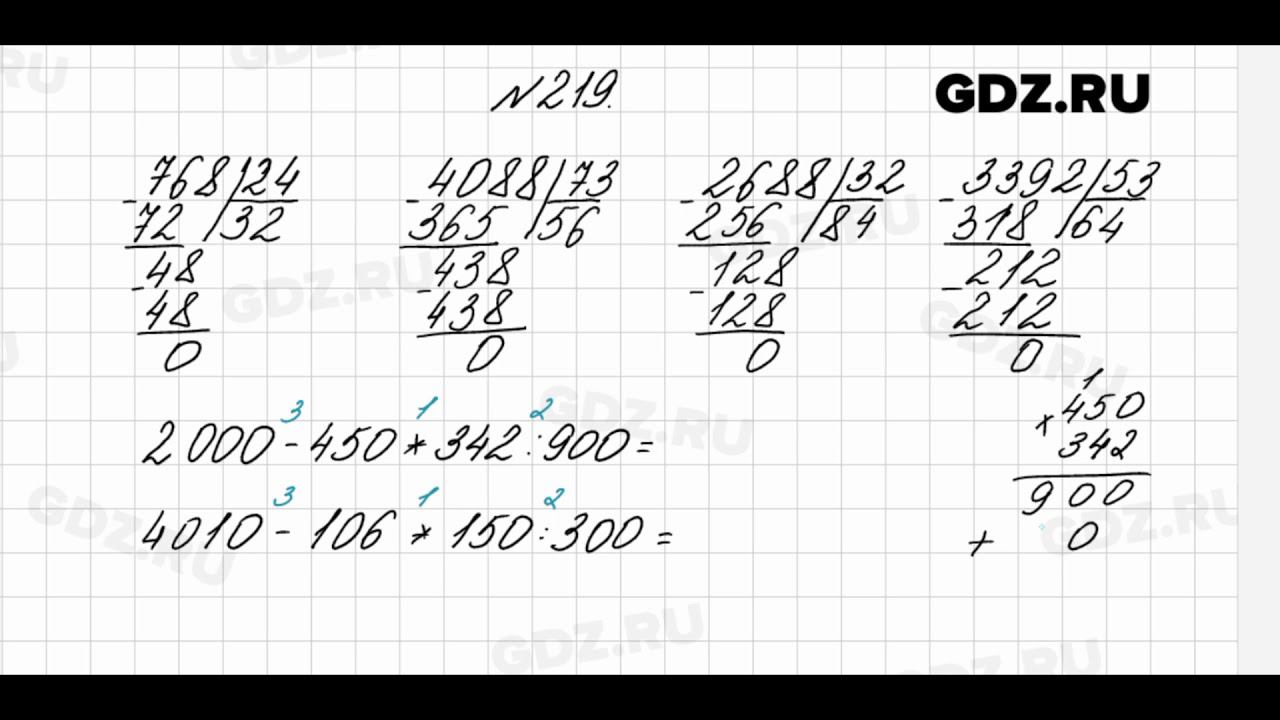 №219.
GDZ.RU
768 24
- 72 32
- 48
48
0
4088 73
- 365 56
- 438
438
0
2688 32
- 256 84
- 128
128
0
3392 53
- 318 64
- 212
212
0
3 1 2
2000 - 450 * 342 : 900 =
3 1 2
4010 - 106 * 150 : 300 =
1
450
×
342
900
+ 0
GDZ.RU
GDZ.RU
GDZ.RU
GDZ.RU
GDZ.RU
GDZ.RU
GDZ.RU
GDZ.RU